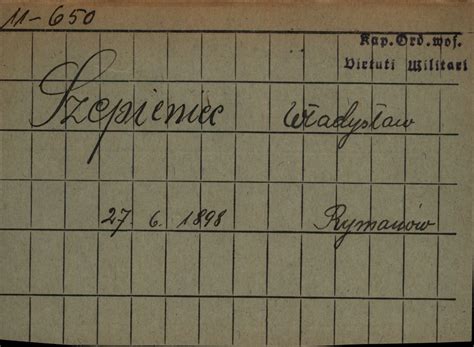 11-650
Kap. Ord. woj.
Virtuti Militari
Szepieniec Władysław
27. 6. 1898 Rymanów